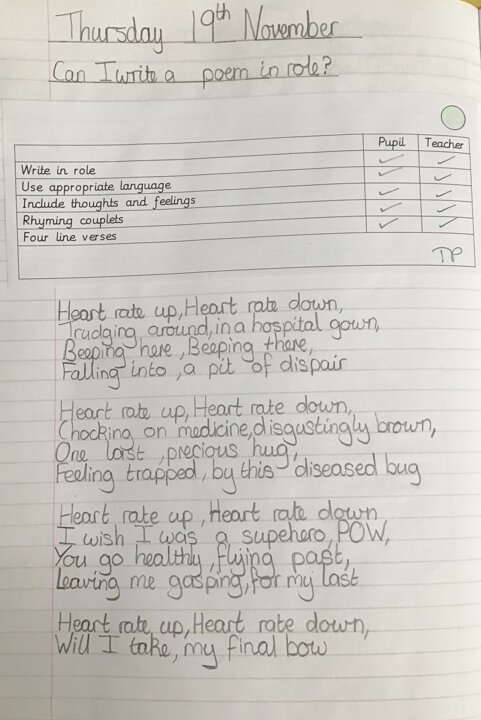 Thursday 19th November
Can I write a poem in role?
Pupil Teacher
Write in role
Use appropriate language
Include thoughts and feelings
Rhyming couplets
Four line verses
TP
Heart rate up, Heart rate down,
Trudging around, in a hospital gown,
Beeping here, Beeping there,
Falling into, a pit of dispair
Heart rate up, Heart rate down,
Chocking on medicine, disgustingly brown,
One last, precious hug,
Feeling trapped, by this diseased bug
Heart rate up, Heart rate down
I wish I was a supehero, POW,
You go healthy, flying past,
Leaving me gasping, for my last
Heart rate up, Heart rate down,
Will I take, my final bow